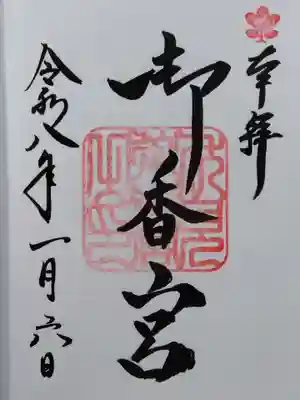 奉拝
御香宮
令和八年一月六日